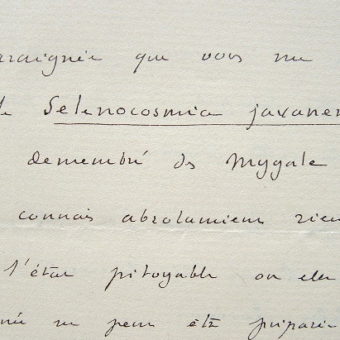 araignée que vous me
de Selenocosmia javanen
demembré des Mygale
connais absolument rien
l'état pitoyable où elle
née ne peut être préparée